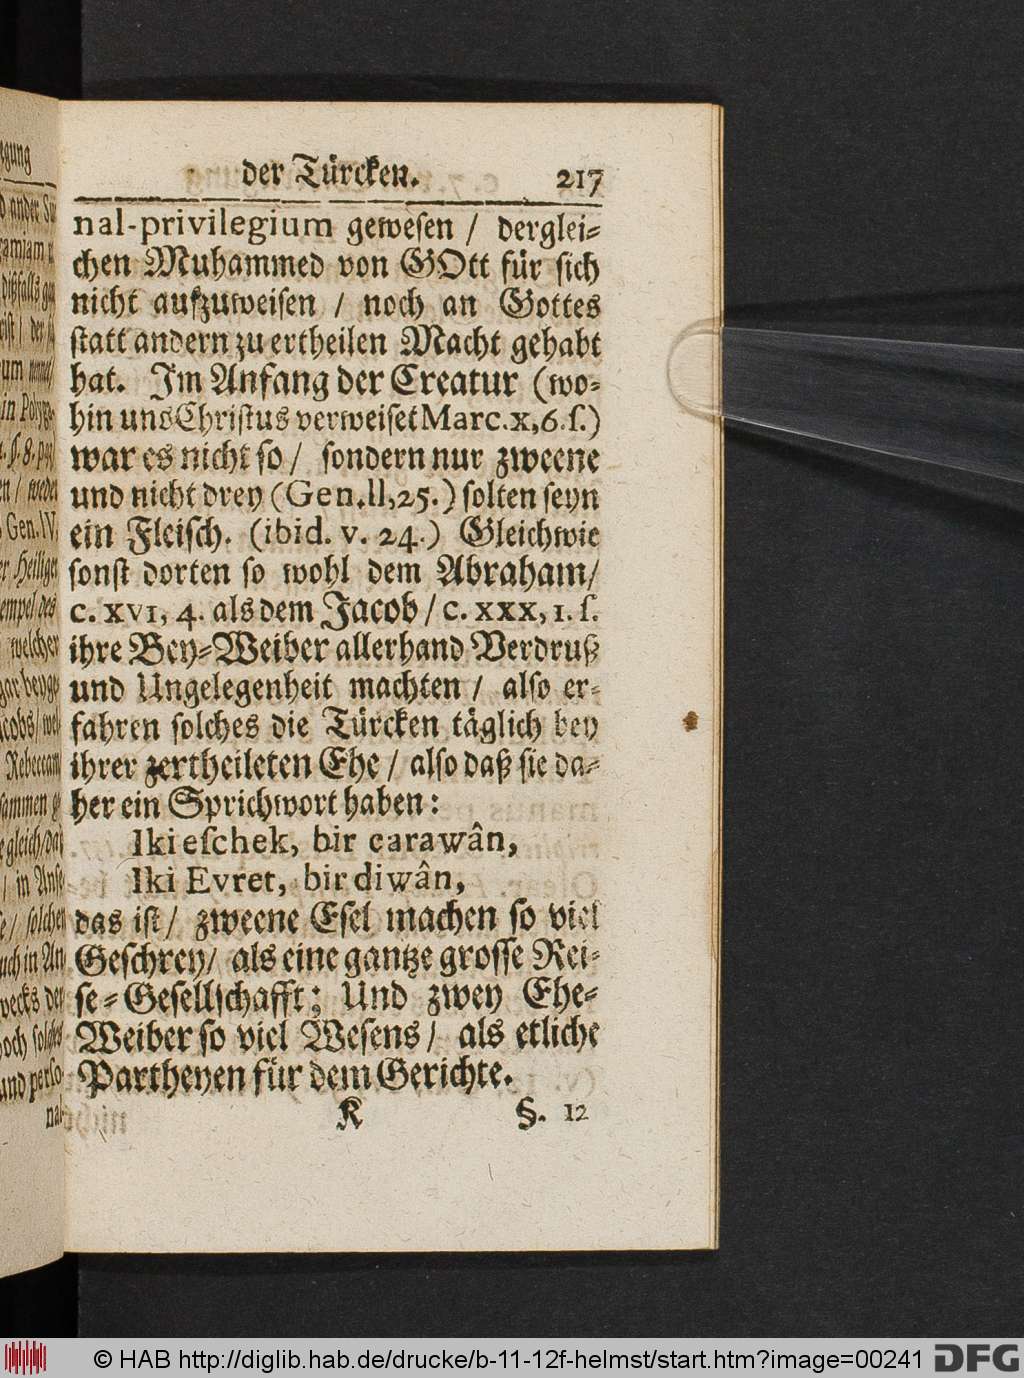 der Türcken. 217
nal-privilegium gewesen / derglei=
chen Muhammed von GOtt für sich
nicht aufzuweisen / noch an Gottes
statt andern zu ertheilen Macht gehabt
hat. Im Anfang der Creatur (wo=
hin uns Christus verweiset Marc. x, 6. ſ.)
war es nicht so / sondern nur zweene
und nicht drey (Gen. II, 25.) solten seyn
ein Fleisch. (ibid. v. 24.) Gleichwie
sonst dorten so wohl dem Abraham /
c. XVI, 4. als dem Jacob / c. XXX, 1. ſ.
ihre Bey=Weiber allerhand Verdruß
und Ungelegenheit machten / also er=
fahren solches die Türcken täglich bey
ihrer zertheileten Ehe / also daß sie da=
her ein Sprichwort haben:
Iki eſchek, bir carawân,
Iki Evret, bir diwân,
das ist / zweene Esel machen so viel
Geschrey / als eine gantze grosse Rei=
se=Gesellschafft; Und zwey Ehe=
Weiber so viel Wesens / als etliche
Partheyen für dem Gerichte.
K §. 12
© HAB http://diglib.hab.de/drucke/b-11-12f-helmst/start.htm?image=00241 DFG